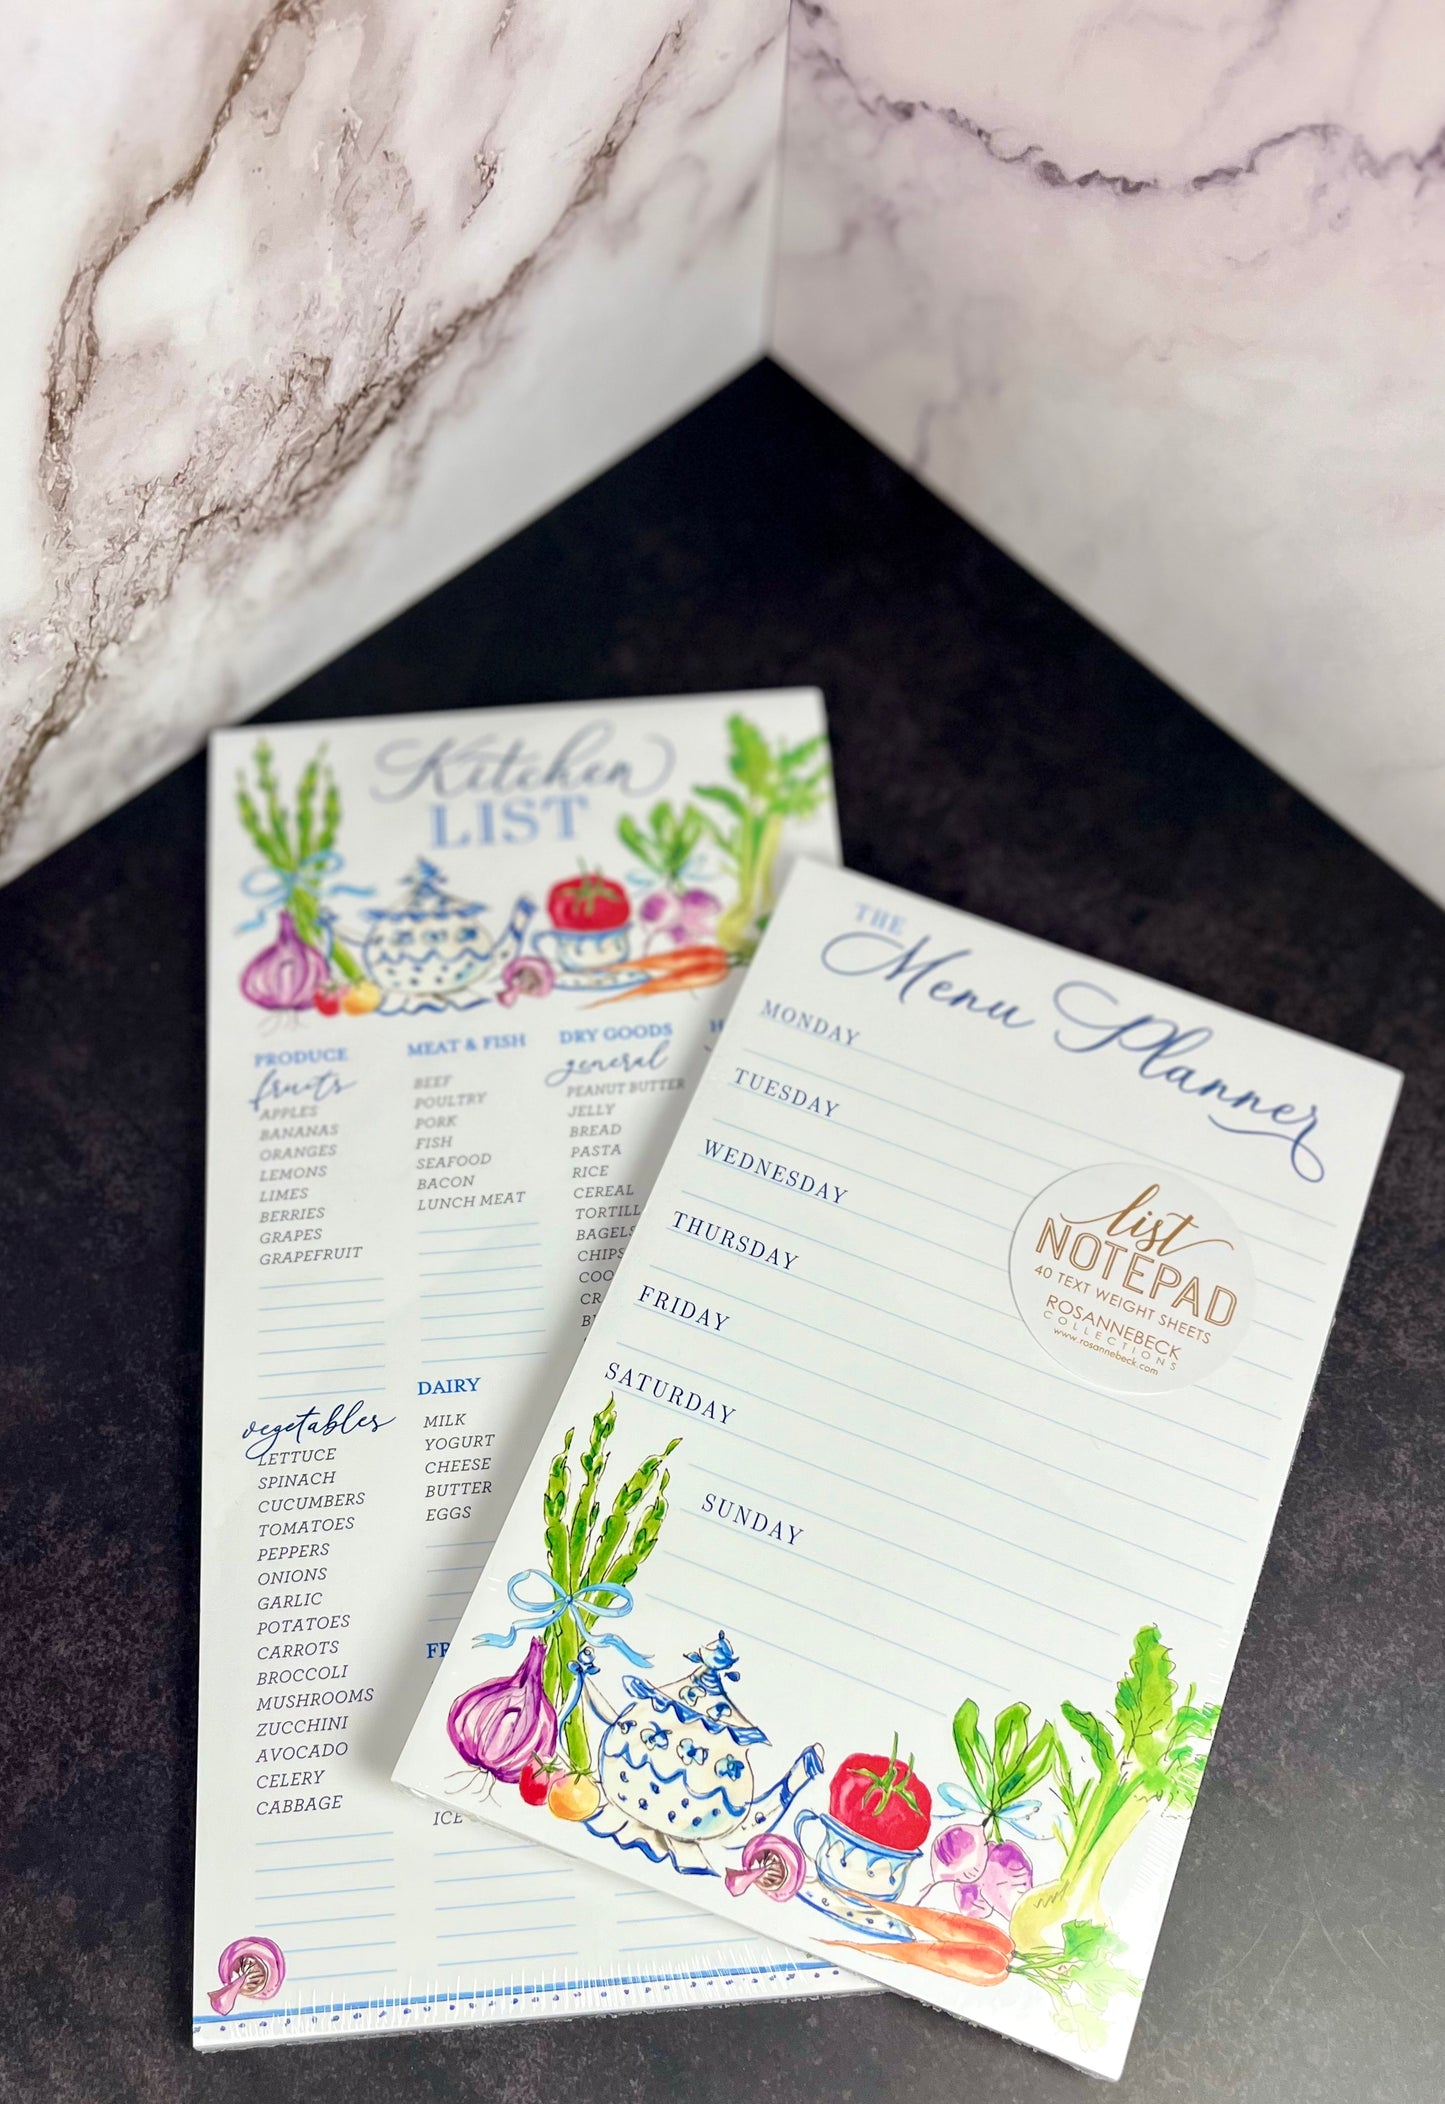 Kitchen
LIST
PRODUCE
fruits
APPLES
BANANAS
ORANGES
LEMONS
LIMES
BERRIES
GRAPES
GRAPEFRUIT
vegetables
LETTUCE
SPINACH
CUCUMBERS
TOMATOES
PEPPERS
ONIONS
GARLIC
POTATOES
CARROTS
BROCCOLI
MUSHROOMS
ZUCCHINI
AVOCADO
CELERY
CABBAGE
MEAT & FISH
BEEF
POULTRY
PORK
FISH
SEAFOOD
BACON
LUNCH MEAT
DAIRY
MILK
YOGURT
CHEESE
BUTTER
EGGS
FR
ICE
DRY GOODS
general
PEANUT BUTTER
JELLY
BREAD
PASTA
RICE
CEREAL
TORTILL
BAGELS
CHIPS
COO
CR
THE
Menu Planner
MONDAY
TUESDAY
WEDNESDAY
THURSDAY
FRIDAY
SATURDAY
SUNDAY
list
NOTEPAD
40 TEXT WEIGHT SHEETS
ROSANNEBECK
COLLECTIONS
www.rosannebeck.com